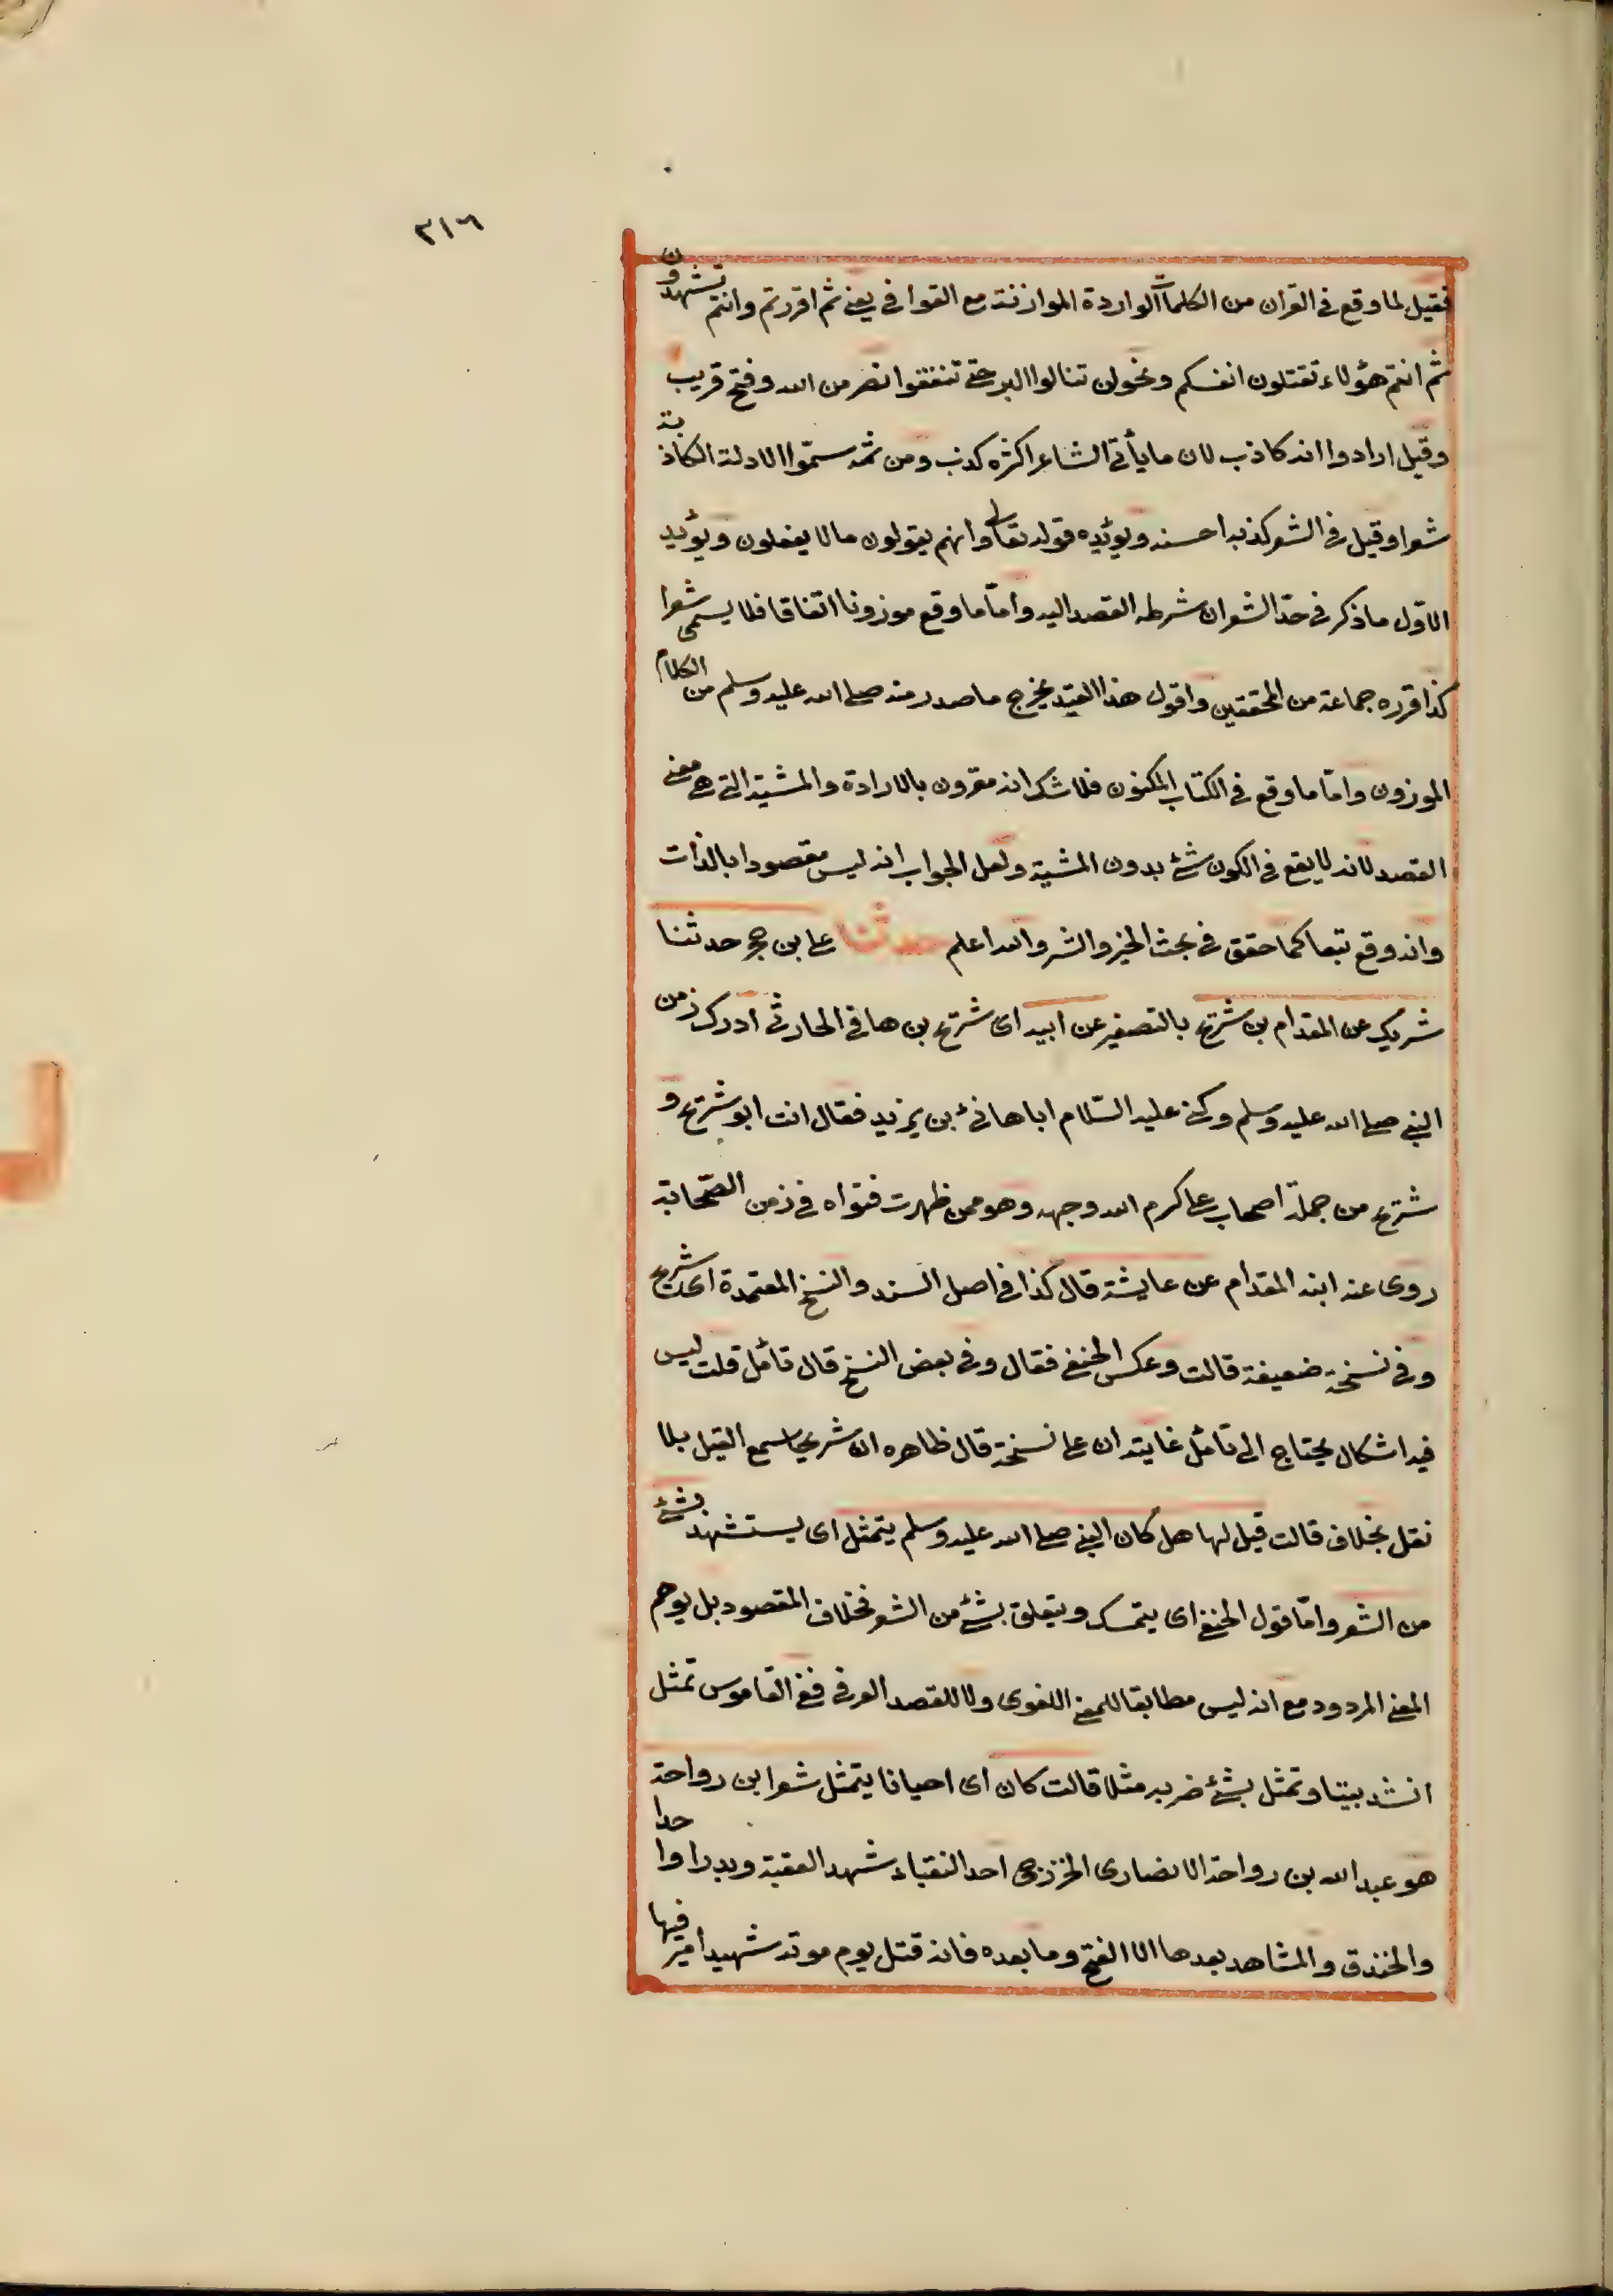 ٣١٦
فقيل لما وقع في القران من الكلمات الواردة الموازنة مع القوافي يعني ثم اقررتم وانتم تشهدون
ثم انتم هؤلاء تقتلون انفسكم ونحو لن تنالوا البر حتى تنفقوا نصر من الله وفتح قريب
وقيل ارادوا انه كاذب لان ما يأتي الشاعر اكثره كذب ومن ثمه سمّوا الادلة الكاذبة
شعرا وقيل في الشعر كذبه احسنه ويؤيده قوله تعالى وانهم يقولون مالا يفعلون ويؤيد
الاوّل ما ذكر في حدّ الشعر ان شرطه القصد اليه وامّا ما وقع موزونا اتفاقا فلا يسمى شعرا
كذا قرره جماعة من المحققين واقول هذا القيد يخرج ما صدر منه صلى الله عليه وسلم من الكلام
الموزون وامّا ما وقع في الكتاب المكنون فلا شك انه مقرون بالارادة والمشية التي هي معنى
القصد لانه لا يقع في الكون شئ بدون المشية ولعل الجواب انه ليس مقصودا بالذات
وانه وقع تبعا كما حقق في بحث الخير والشر والله اعلم حدثنا على بن حجر حدثنا
شريك عن المقدام بن شريح بالتصغير عن ابيه اى شريح بن هانى الحارثي ادرك زمن
النبي صلى الله عليه وسلم وكنى عليه السّلام اباها نئ بن يزيد فقال انت ابو شريح و
شريح من جملة اصحاب على كرم الله وجهه وهو ممن ظهرت فتواه في زمن الصّحابة
روى عنه ابنه المقدام عن عايشة قال كذا في اصل السند والنسخ المعتمدة اى شريح
وفي نسخة ضعيفة قالت وعكس الحنفي فقال وفي بعض النسخ قال تأمل قلت ليس
فيه اشكال يحتاج الى تأمّل غايته ان على نسخة قال ظاهره ان شريحا سمع القيل بلا
نقل بخلاف قالت قيل لها هل كان النبي صلى الله عليه وسلم يتمثل اى يستشهد بشئ
من الشعر وامّا قول الحنفي اى يتمسك ويتعلق بشئ من الشعر فخلاف المقصود بل يوهم
المعنى المردود مع انه ليس مطابقا للمعنى اللغوى ولا للقصد العرفي ففي القاموس تمثل
انشد بيتا وتمثل بشئ ضربه مثلا قالت كان اى احيانا يتمثل شعر ابن رواحة
هو عبد الله بن رواحة الانصارى الخزرجى احد النقباء شهد العقبة وبدرا واحدا
والخندق والمشاهد بعدها الا الفتح وما بعده فانه قتل يوم موته شهيدا اميرا فيها